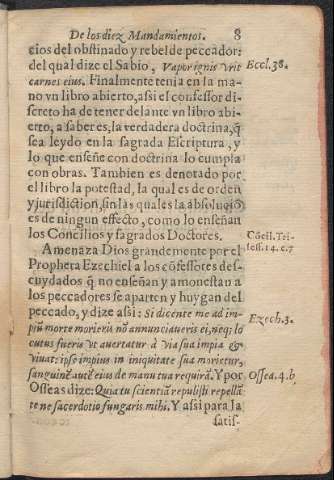 De los diez Mandamientos. 8
cios del obstinado y rebelde peccador:
del qual dize el Sabio, Vapor ignis vrit Eccl. 38.
carnes eius. Finalmente tenia en la ma-
no vn libro abierto, assi el confessor di-
screto ha de tener delante vn libro abi-
erto, a saber es, la verdadera doctrina, q̃
sea leydo en la sagrada Escriptura, y
lo que enseñe con doctrina lo cumpla
con obras. Tambien es denotado por
el libro la potestad, la qual es de orden
y jurisdiction, sin las quales la absoluciõ
es de ningun effecto, como lo enseñan
los Concilios y sagrados Doctores. Cõcil. Tri-
Amenaza Dios grandemente por el sess. 14. c. 7
Propheta Ezechiel a los cõfessores des-
cuydados q̃ no enseñan y amonestan a
los peccadores se aparten y huygan del
peccado, y dize assi: Si dicente me ad im-
piũ morte morieris nõ annunciaueris ei, neq; lo Ezech. 3.
cutus fueris vt auertatur à via sua impia &
viuat: ipse impius in iniquitate sua morietur,
sanguinẽ autẽ eius de manu tua requirã. Y por Ossea. 4. b
Osseas dize: Quia tu scientiã repulisti repellã
te ne sacerdotio fungaris mihi. Y assi para la
satis-